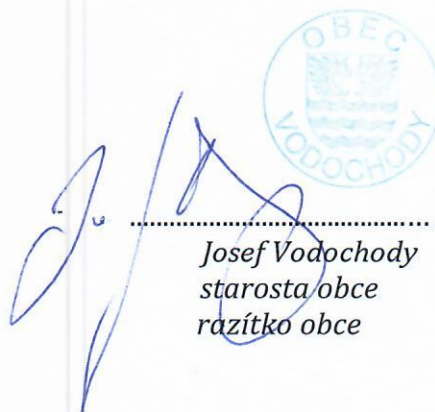 OBEC
VODOCHODY
........................................
Josef Vodochody
starosta obce
razítko obce